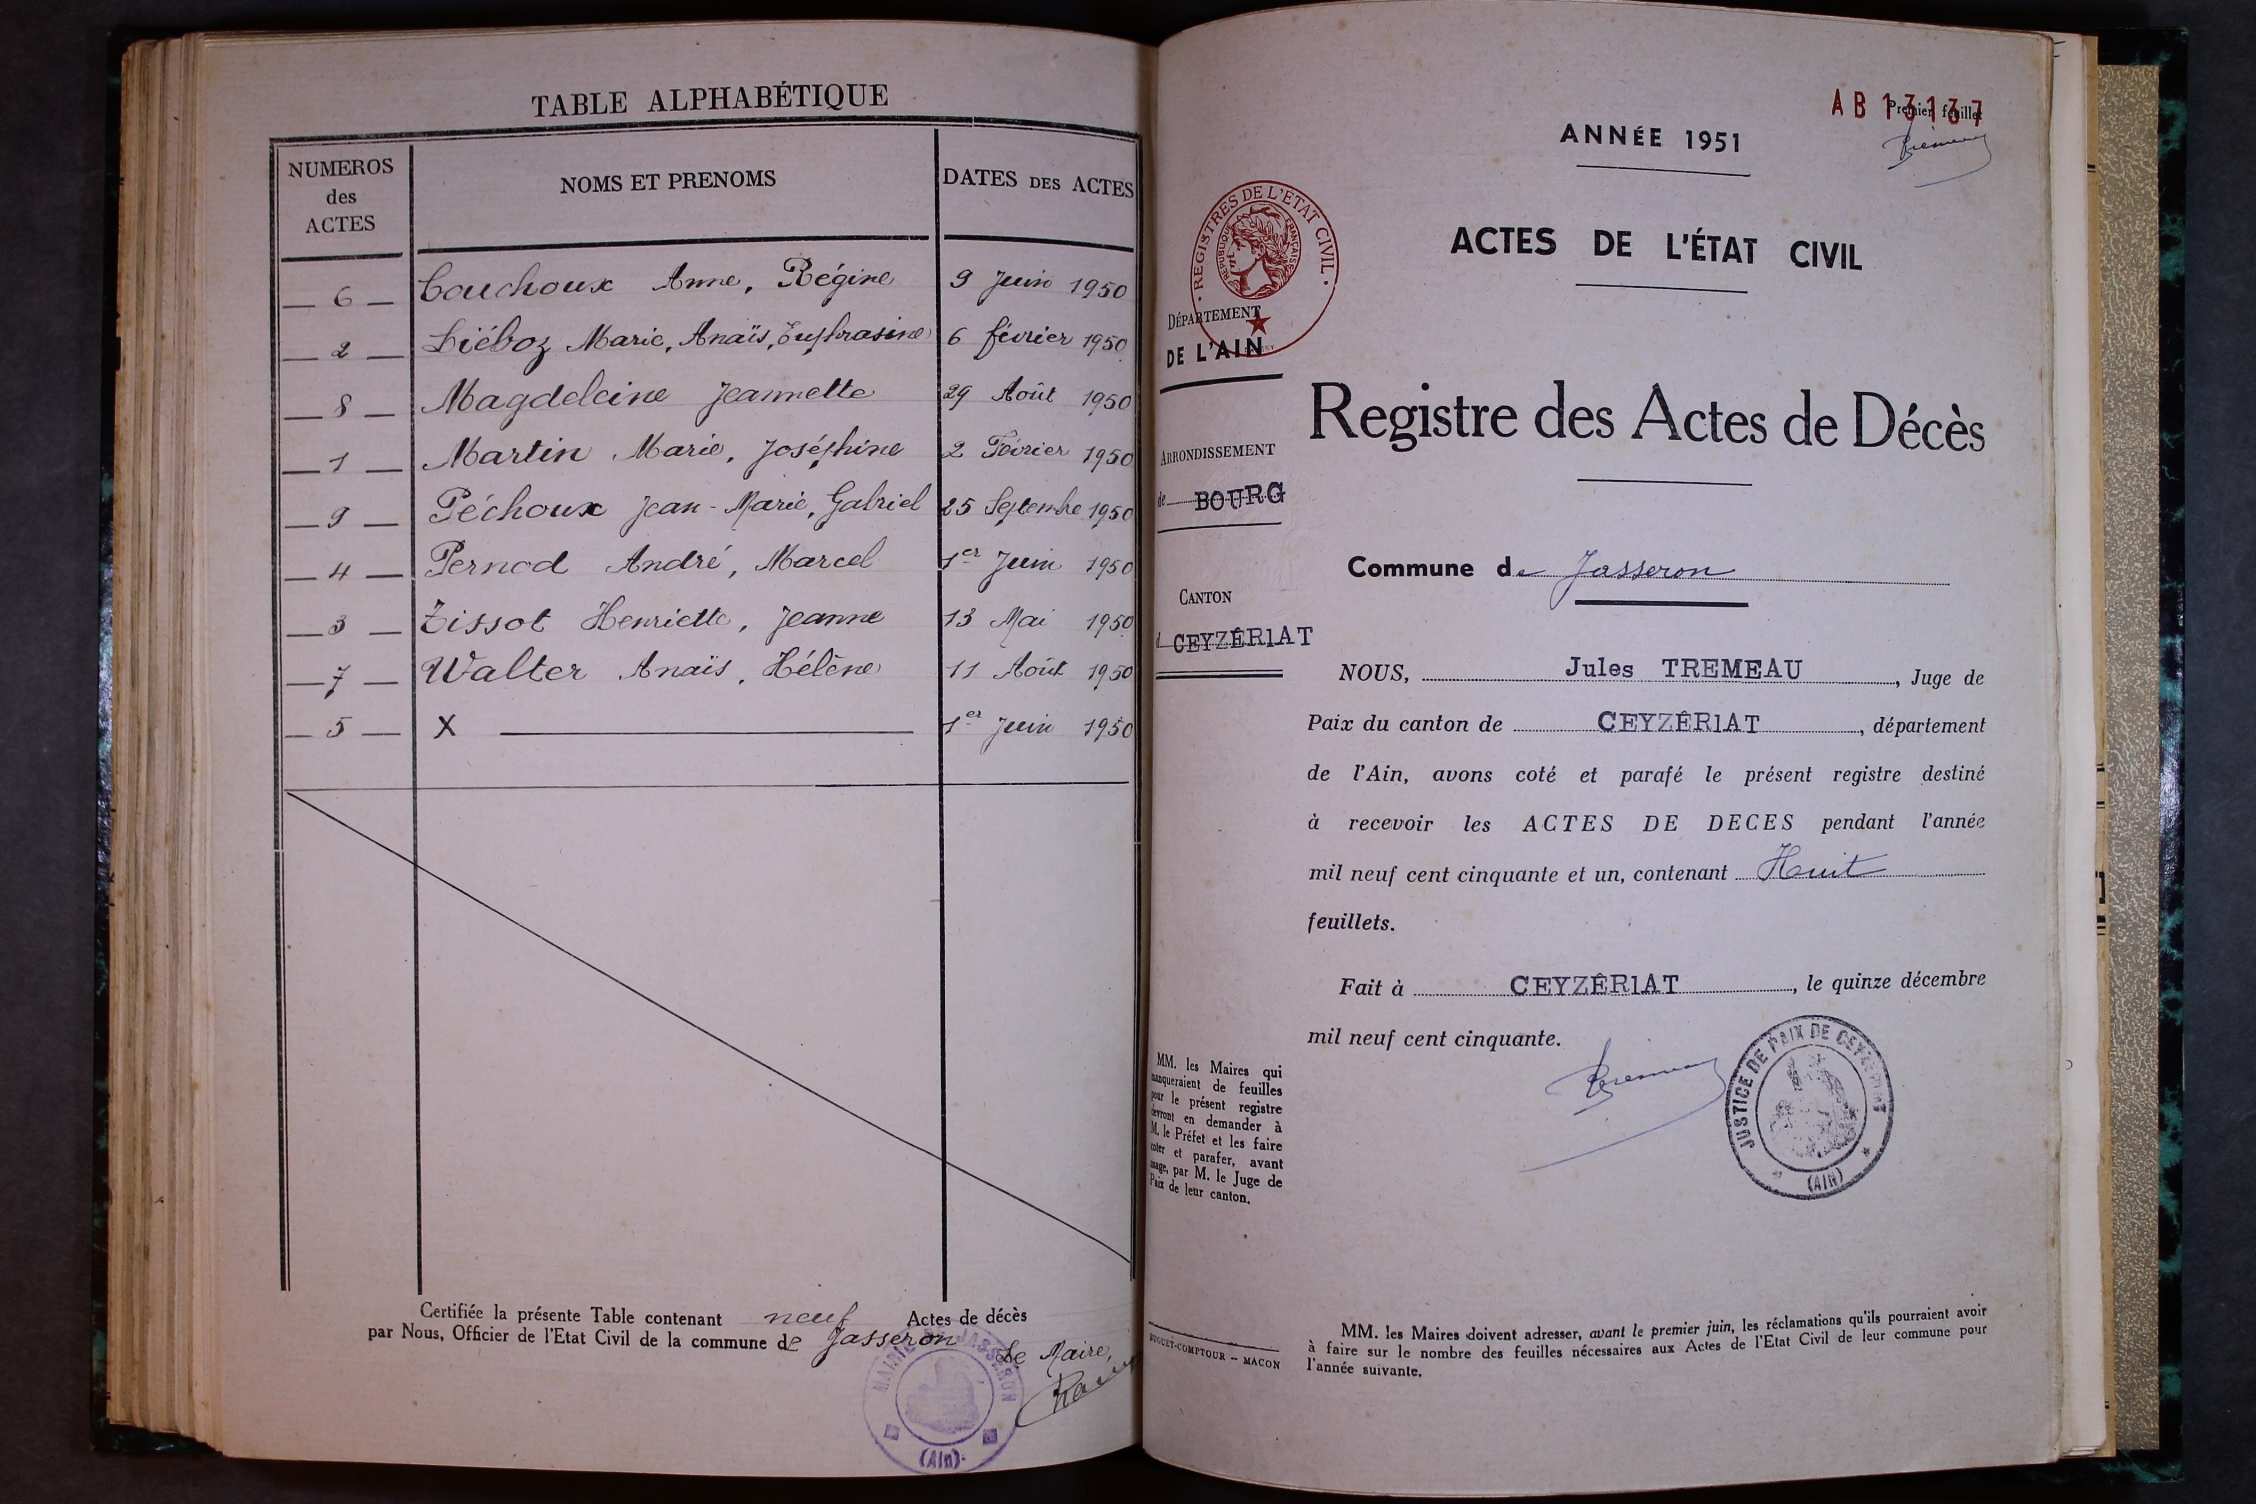 TABLE ALPHABÉTIQUE
NUMEROS des ACTES NOMS ET PRENOMS DATES DES ACTES
6 Couchoux Anne, Régine 9 Juin 1950
2 Liéboz Marie, Anaïs, Euphrasine 6 février 1950
8 Magdeleine Jeannette 29 Août 1950
1 Martin Marie, Joséphine 2 Février 1950
9 Péchoux Jean-Marie, Gabriel 25 Septembre 1950
4 Pernod André, Marcel 1er Juin 1950
3 Tissot Henriette, Jeanne 13 Mai 1950
7 Walter Anaïs, Hélène 11 Août 1950
5 X 1er Juin 1950
Certifiée la présente Table contenant neuf Actes de décès
par Nous, Officier de l'Etat Civil de la commune de Jasseron
Le Maire,
MAIRIE DE JASSERON
(Ain)
AB 13137
Premier feuillet
ANNÉE 1951
REGISTRES DE L'ÉTAT CIVIL
RÉPUBLIQUE FRANÇAISE
ACTES DE L'ÉTAT CIVIL
DÉPARTEMENT
DE L'AIN
Registre des Actes de Décès
ARRONDISSEMENT
de BOURG
Commune de Jasseron
CANTON
d CEYZÉR1AT
NOUS, Jules TREMEAU, Juge de
Paix du canton de CEYZÉR1AT, département
de l'Ain, avons coté et parafé le présent registre destiné
à recevoir les ACTES DE DECES pendant l'année
mil neuf cent cinquante et un, contenant Huit
feuillets.
Fait à CEYZÉR1AT, le quinze décembre
mil neuf cent cinquante.
JUSTICE DE PAIX DE CEYZERIAT
(AIN)
MM. les Maires qui
manqueraient de feuilles
pour le présent registre
devront en demander à
M. le Préfet et les faire
coter et parafer, avant
usage, par M. le Juge de
Paix de leur canton.
BUGUET-COMPTOUR -- MACON
MM. les Maires doivent adresser, avant le premier juin, les réclamations qu'ils pourraient avoir
à faire sur le nombre des feuilles nécessaires aux Actes de l'Etat Civil de leur commune pour
l'année suivante.